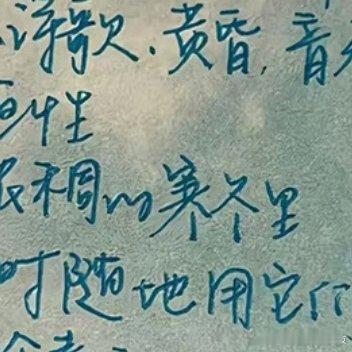 诗歌、黄昏,音
性
稠的寒冬里
时随地用它们